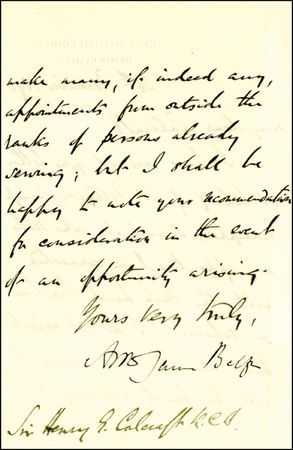 make many, if indeed any,
appointments from outside the
ranks of persons already
serving; but I shall be
happy to note your recommendation
for consideration in the event
of an opportunity arising.
Yours very truly,
Arthur James Balfour
Sir Henry G. Calcraft K.C.B.